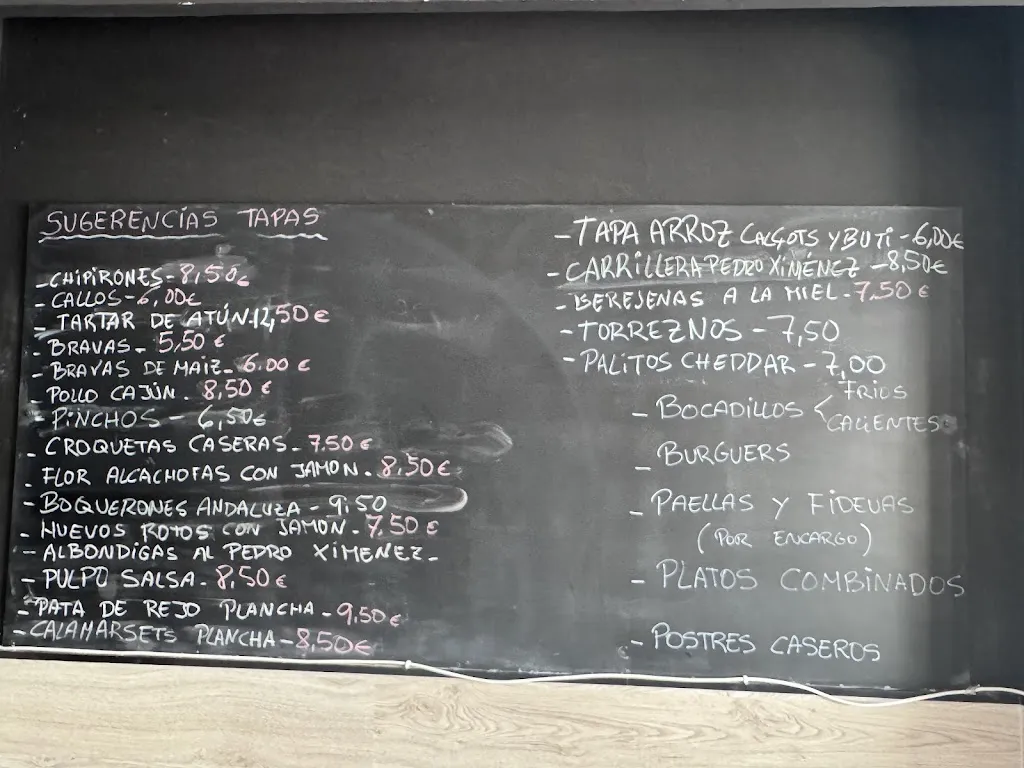 SUGERENCIAS TAPAS
- CHIPIRONES - 8,50€
- CALLOS - 6,00€
- TARTAR DE ATÚN. 12,50 €
- BRAVAS - 5,50 €
- BRAVAS DE MAIZ - 6.00 €
- POLLO CAJÚN. 8,50 €
- PINCHOS - 6,50€
- CROQUETAS CASERAS - 7.50 €
- FLOR ALCACHOFAS CON JAMON. 8,50€
- BOQUERONES ANDALUZA - 9:50
- HUEVOS ROTOS CON JAMON. 7,50 €
- ALBONDIGAS AL PEDRO XIMENEZ -
- PULPO SALSA - 8,50€
- PATA DE REJO PLANCHA - 9,50€
- CALAMARSETS PLANCHA - 8,50€
- TAPA ARROZ CALÇOTS Y BUTI - 6,00€
- CARRILLERA PEDRO XIMÉNEZ - 8,50€
- BEREJENAS A LA MIEL - 7,50 €
- TORREZNOS - 7,50
- PALITOS CHEDDAR - 7,00
- BOCADILLOS < FRIOS
CALIENTES
- BURGUERS
- PAELLAS Y FIDEUAS
(POR ENCARGO)
- PLATOS COMBINADOS
- POSTRES CASEROS